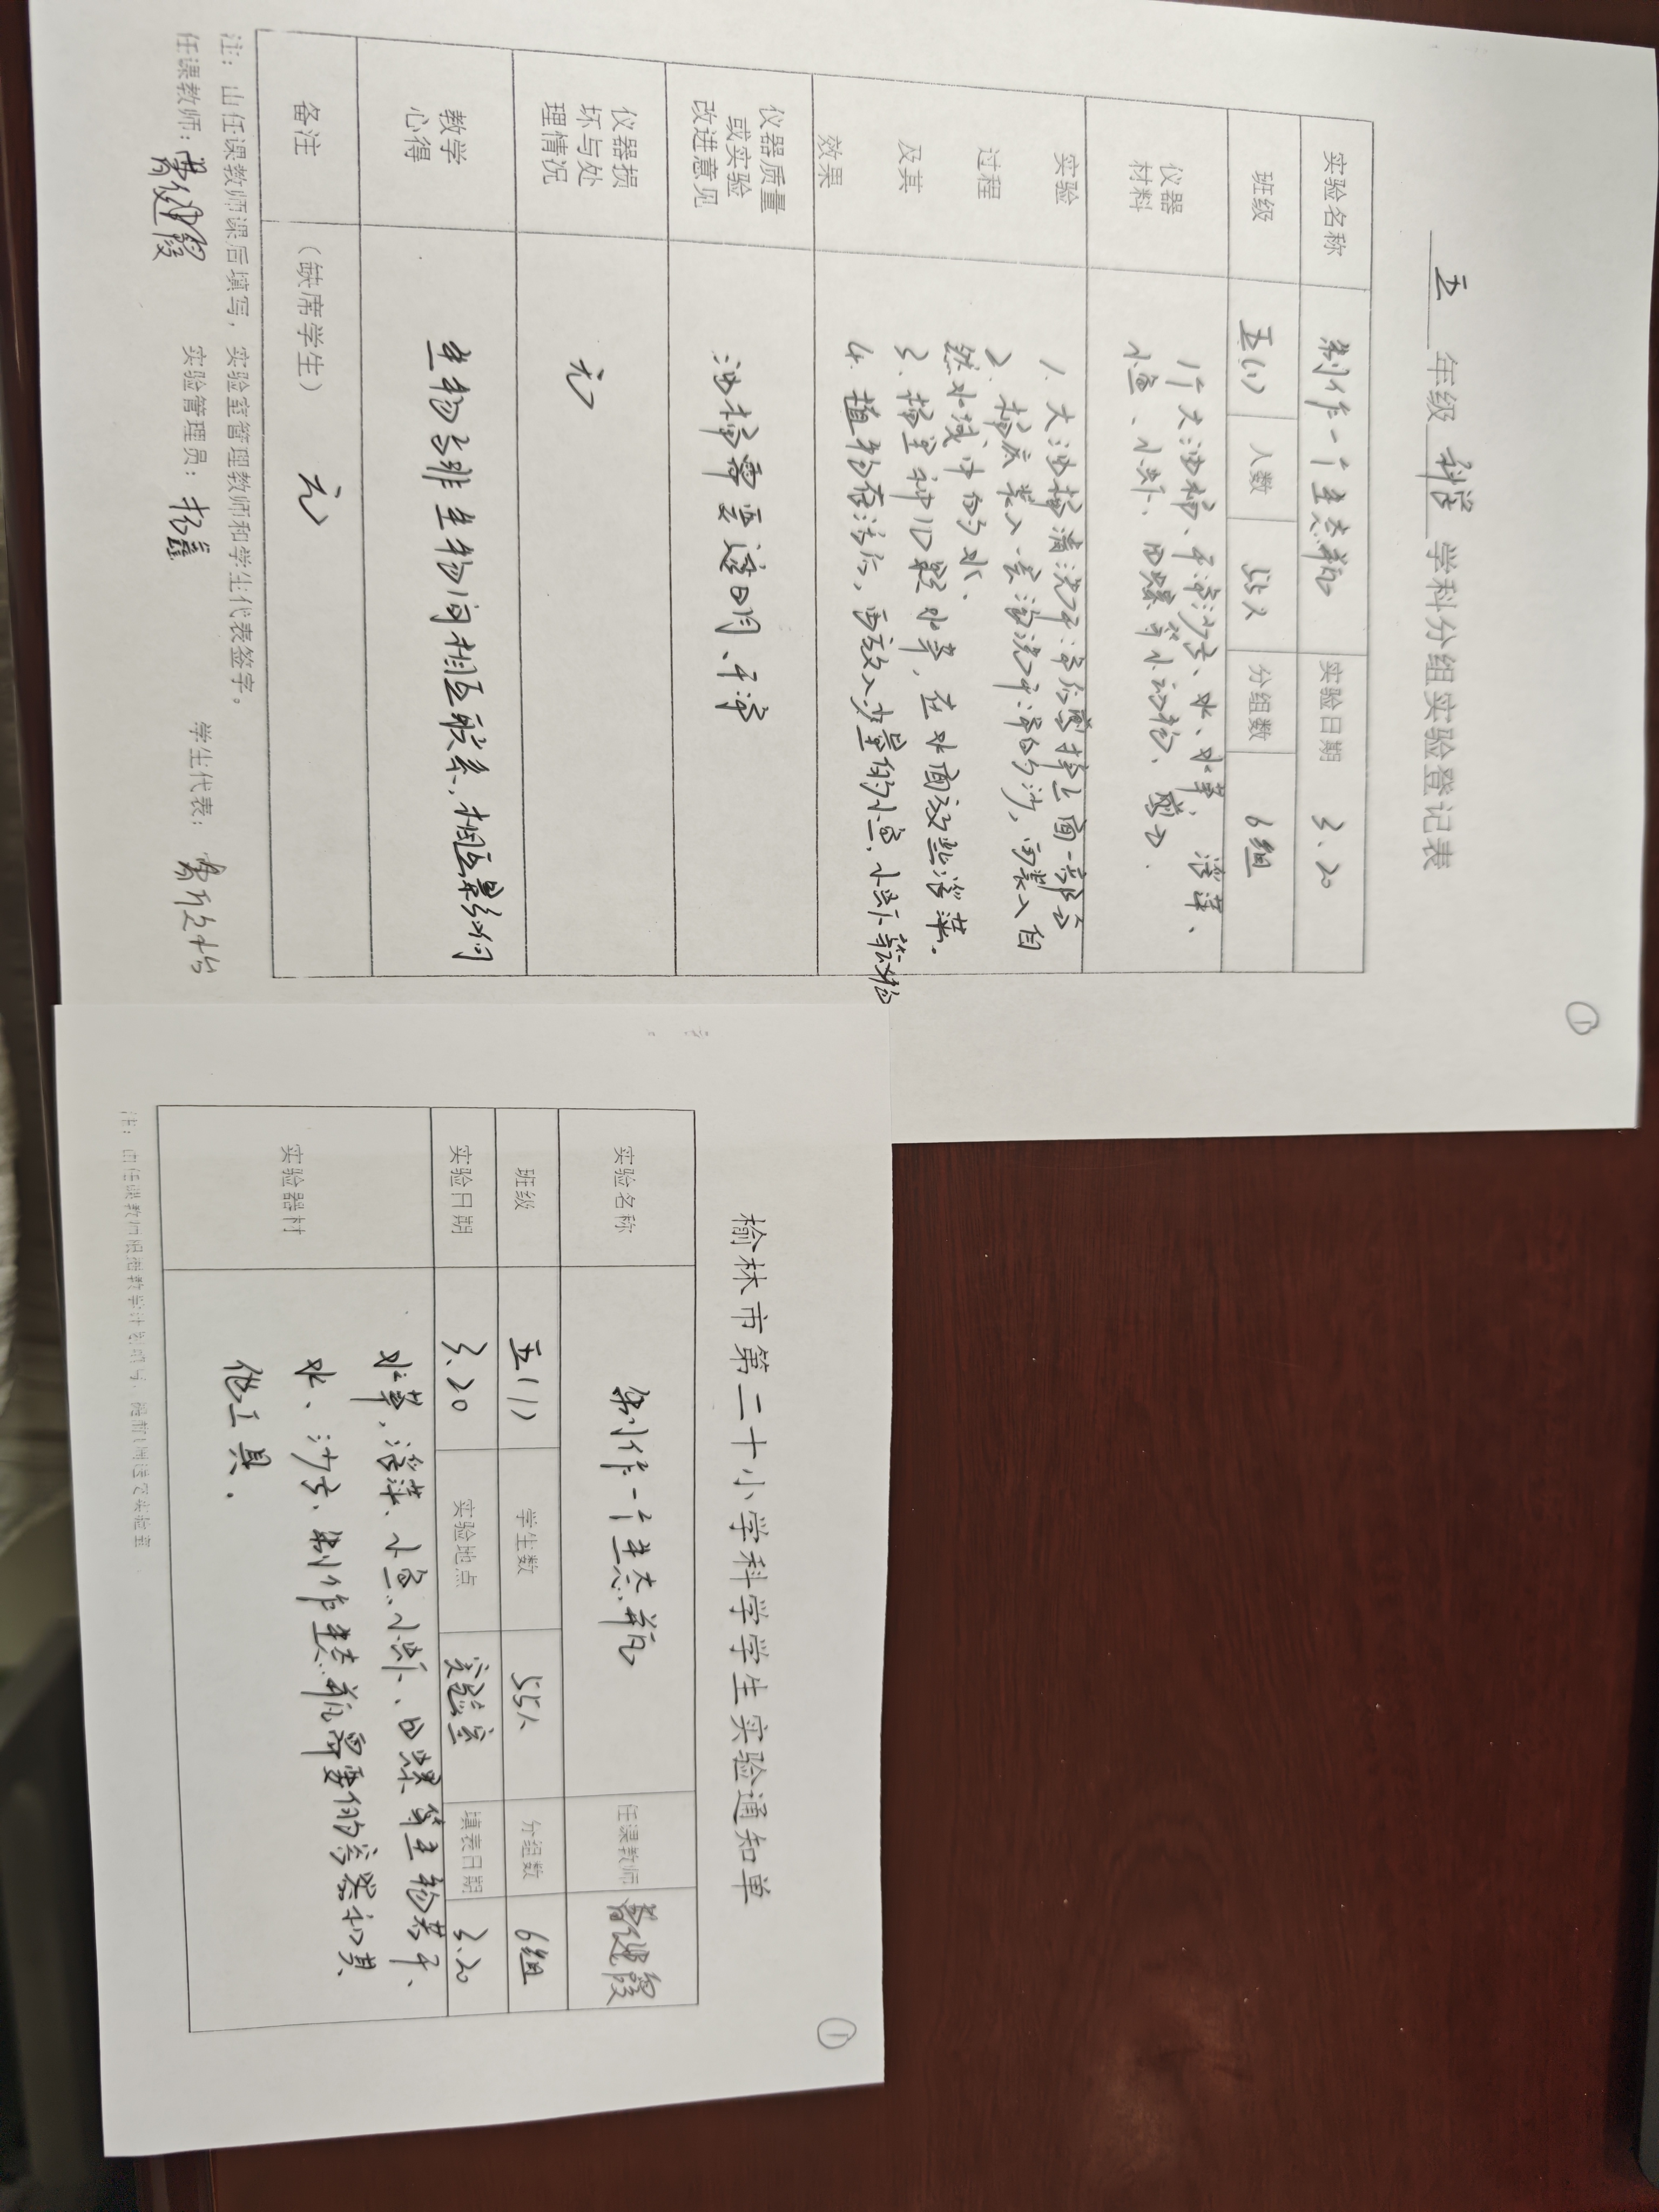 ①
五 年级 科学 学科分组实验登记表
实验名称 制作一个生态瓶 实验日期 3.20
班级 五(1) 人数 55人 分组数 6组
仪器材料 1个大油桶、干净沙子、水、水草、浮萍、
小鱼、小虾、田螺等小动物、剪刀.
实验过程及其效果
1. 大油桶清洗干净后剪掉上面一部分
2. 桶底装入一层淘洗干净的沙，再装入自
然水域中的水、
3. 桶里种几颗水草，在水面放些浮萍。
4. 植物存活后，再放入少量的小鱼，小虾等动物
仪器质量或实验改进意见 油桶需要透明、干净
仪器损坏与处理情况 无
教学心得 生物与非生物间相互联系、相互影响
备注 （缺席学生） 无
注：由任课教师课后填写，实验室管理教师和学生代表签字。
任课教师: 实验管理员: 学生代表:
①
榆林市第二十小学科学学生实验通知单
实验名称 制作一个生态瓶 任课教师
班级 五(1) 学生数 55人 分组数 6组
实验日期 3.20 实验地点 实验室 填表日期 3.20
实验器材 水草，浮萍、小鱼、小虾、田螺等生物若干、
水、沙子、制作生态瓶需要的容器和其
他工具.